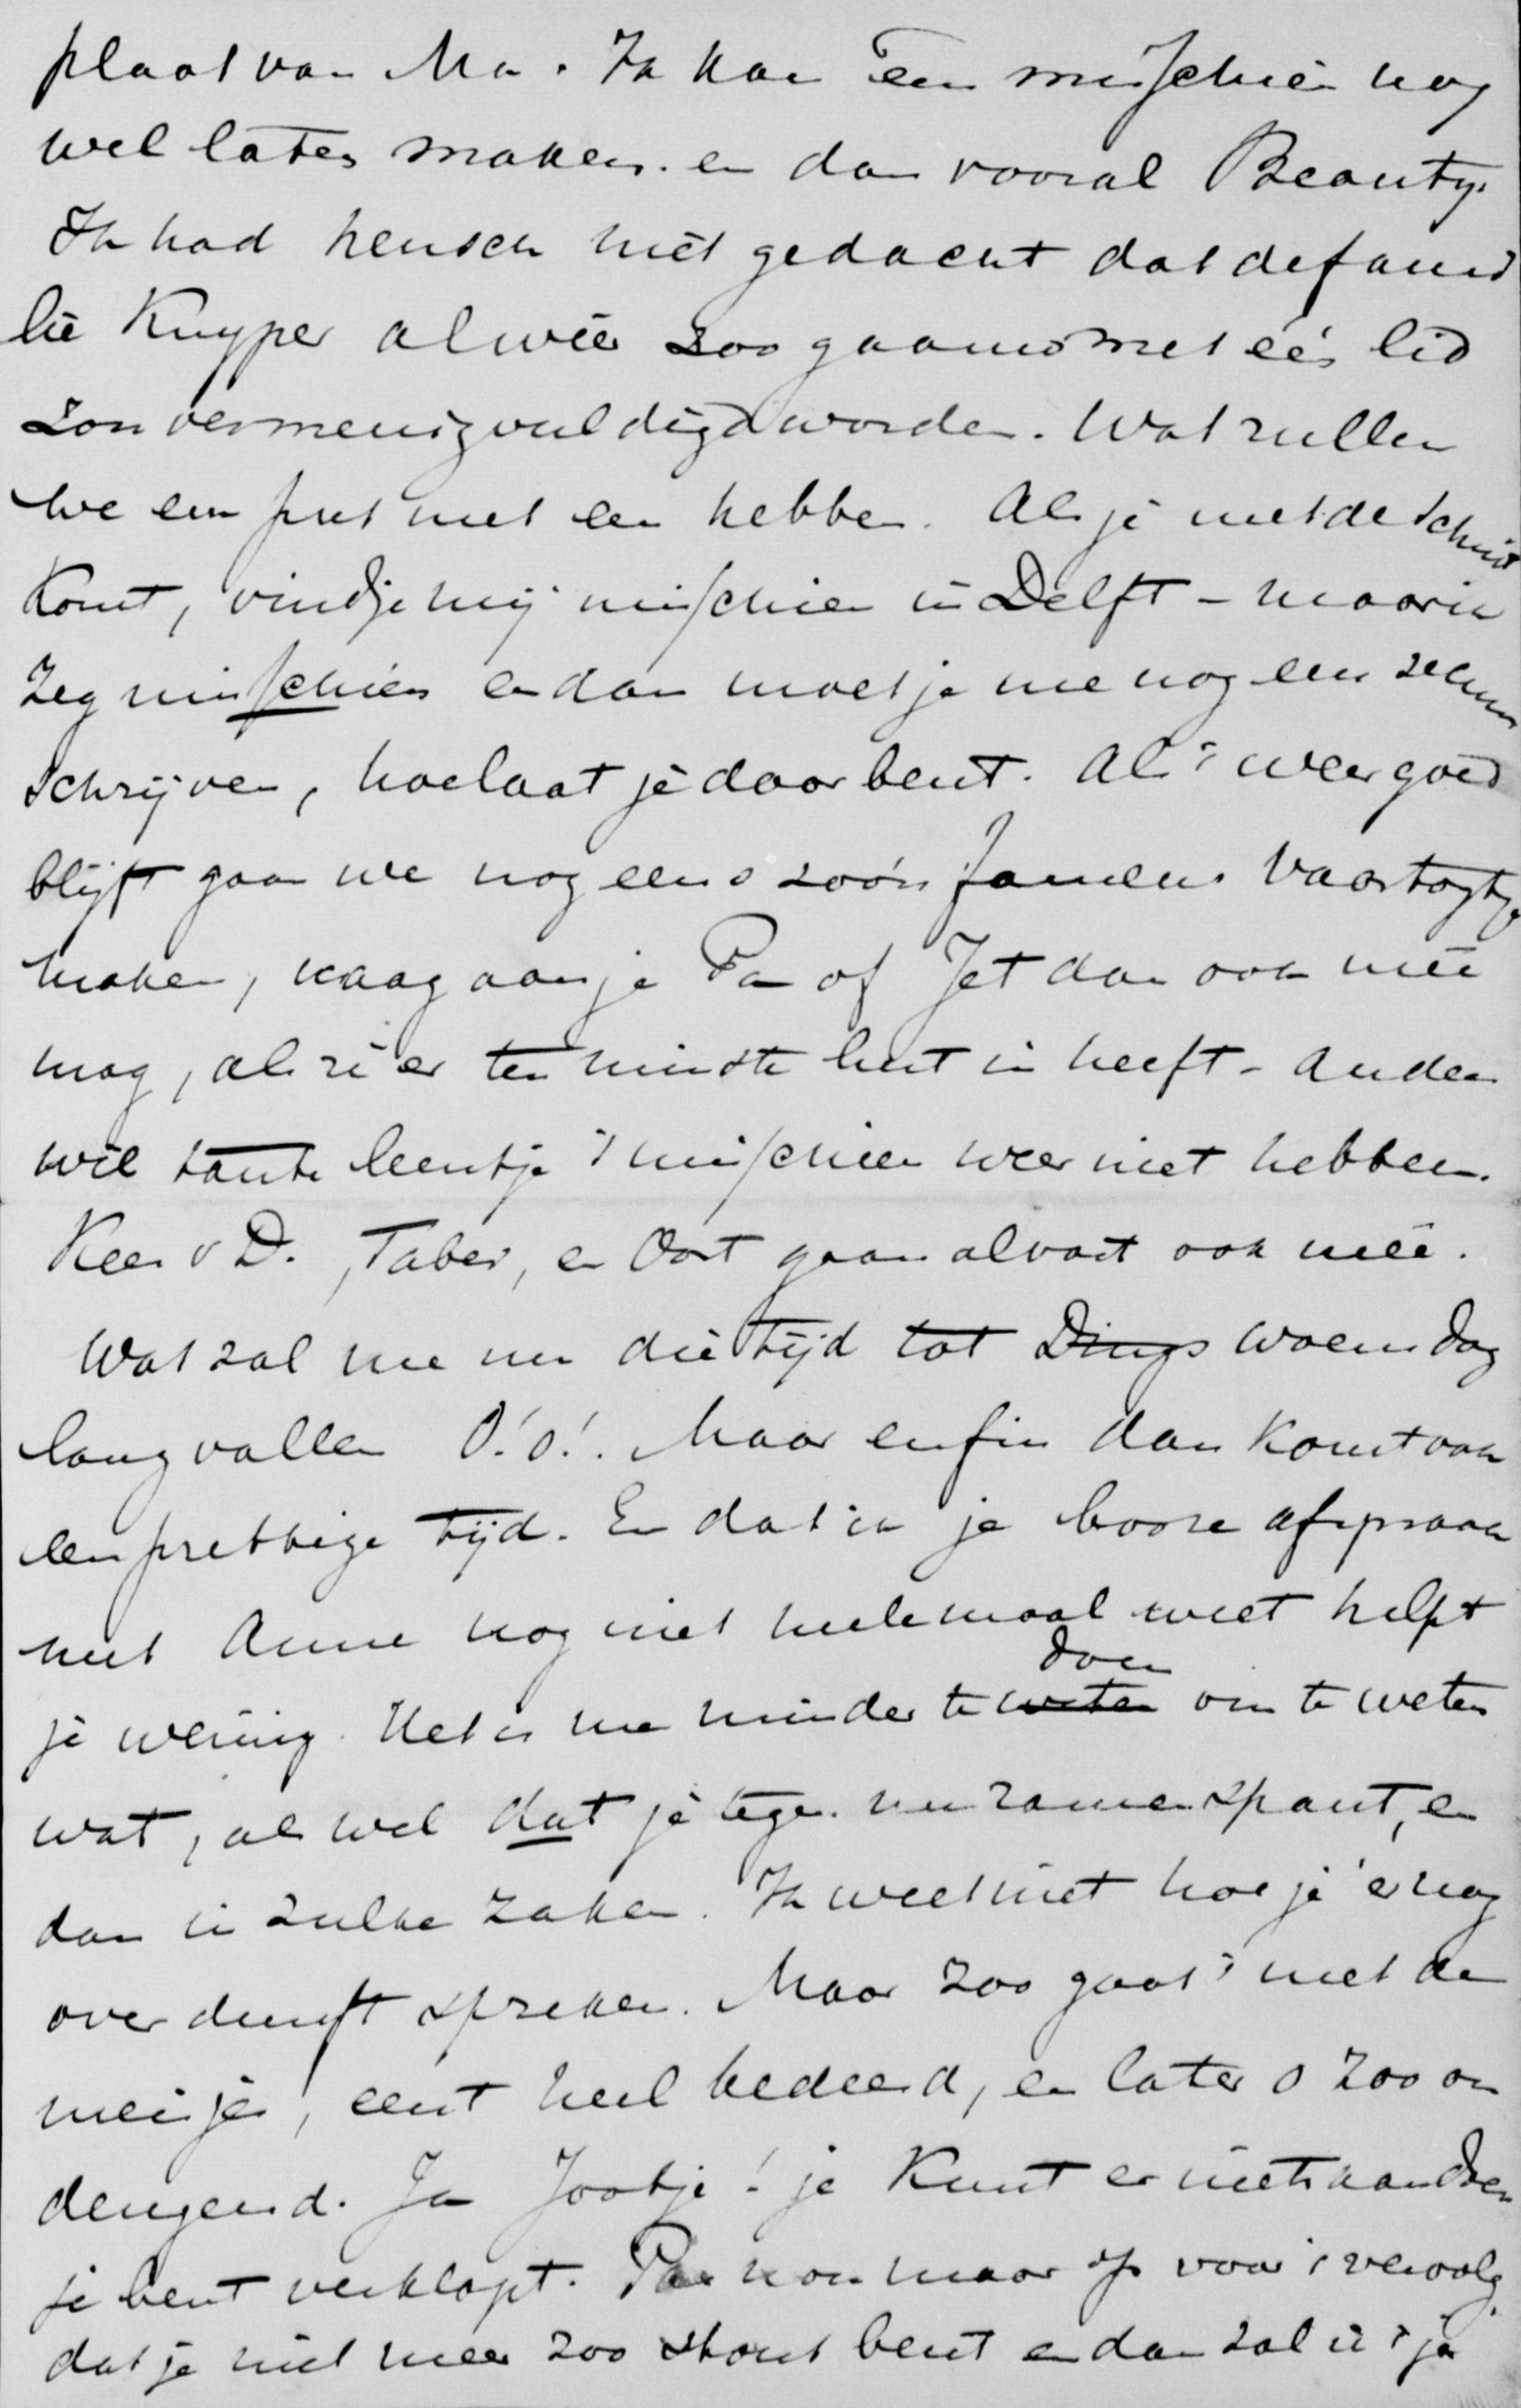 plaat van Ma. Ik kan een misschien nog
wel laten maken. en dan vooral Beauty.
Ik had heusch niet gedacht dat de fami
lie Kuyper alweer zoo gaauw met één lid
zou vermenigvuldigd worden. Wat zullen
we een pret met een hebben. Als je met de schuit
komt, vind je mij misschien in Delft - maar ik
zeg misschien en dan moet je me nog eens
schrijven, hoe laat je daar bent. Als 't weer goed
blijft gaan we nog eens zoo'n fameus vaartogtje
maken, vraag aan je Pa of Jet dan ook meê
mag, als zi er ten minste lust in heeft - anders
wil tante Leentje 't misschien weer niet hebben.
Kees v D., Taber, en Oort gaan alvast ook meê.
Wat zal me nu die tijd tot Dings woensdag
lang vallen O! o!. Maar enfin dan komt ook
een prettige tijd. En dat ik je booze afspraak
met Anne nog niet heelemaal weet helpt
je weinig. Het is me minder te weten doen om te weten
wat, als wel dat je tegen me zamenspant, en
dan in zulke zaken. Ik weet niet hoe je er nog
over durft spreken. Maar zoo gaat 't met de
meisjes, eerst heel bedeesd, en later o zoo on
deugend. Ja Jootje! je kunt er niets aan doen
je bent verklapt. Pas nou maar op voor 't vervolg
dat je niet meer zoo stout bent en dan zal ik 't je